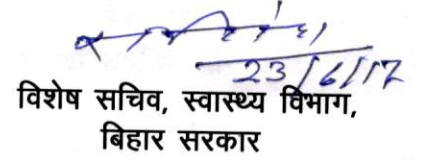 23/6/17
विशेष सचिव, स्वास्थ्य विभाग,
बिहार सरकार